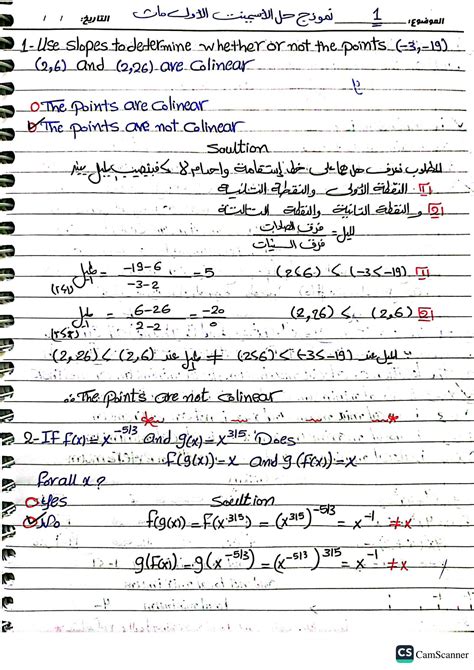 الموضوع: 1 نموذج حل الاسيمنت الاولى ماث التاريخ: / /
1-Use slopes to determine whether or not the points (-3,-19)
(2,6) and (2,26) are Colinear
The Points are Colinear
The Points are not Colinear
Soultion
المطلوب نعرف هل هما على خط إستقامة واحد ام لا
1 النقطة الأولى والنقطة الثانية
2 والنقطة الثانية والنقطة الثالثة
الميل = فرق الصادات
فرق السينات
-19-6 / -3-2 = 5 (2,6) , (-3,-19) 1
6-26 / 2-2 = -20 / 0 (2,26) , (2,6) 2
∴ The Points are not Colinear
2-IF f(x)=x^-5/3 and g(x)=x^3/5 Does
f(g(x))=x and g(f(x))=x
for all x?
Yes
Soultion
No f(g(x))=F(x^3/5)=(x^3/5)^-5/3=x^-1 ≠x
g(F(x))=g(x^-5/3)=(x^-5/3)^3/5=x^-1 ≠x
CS CamScanner